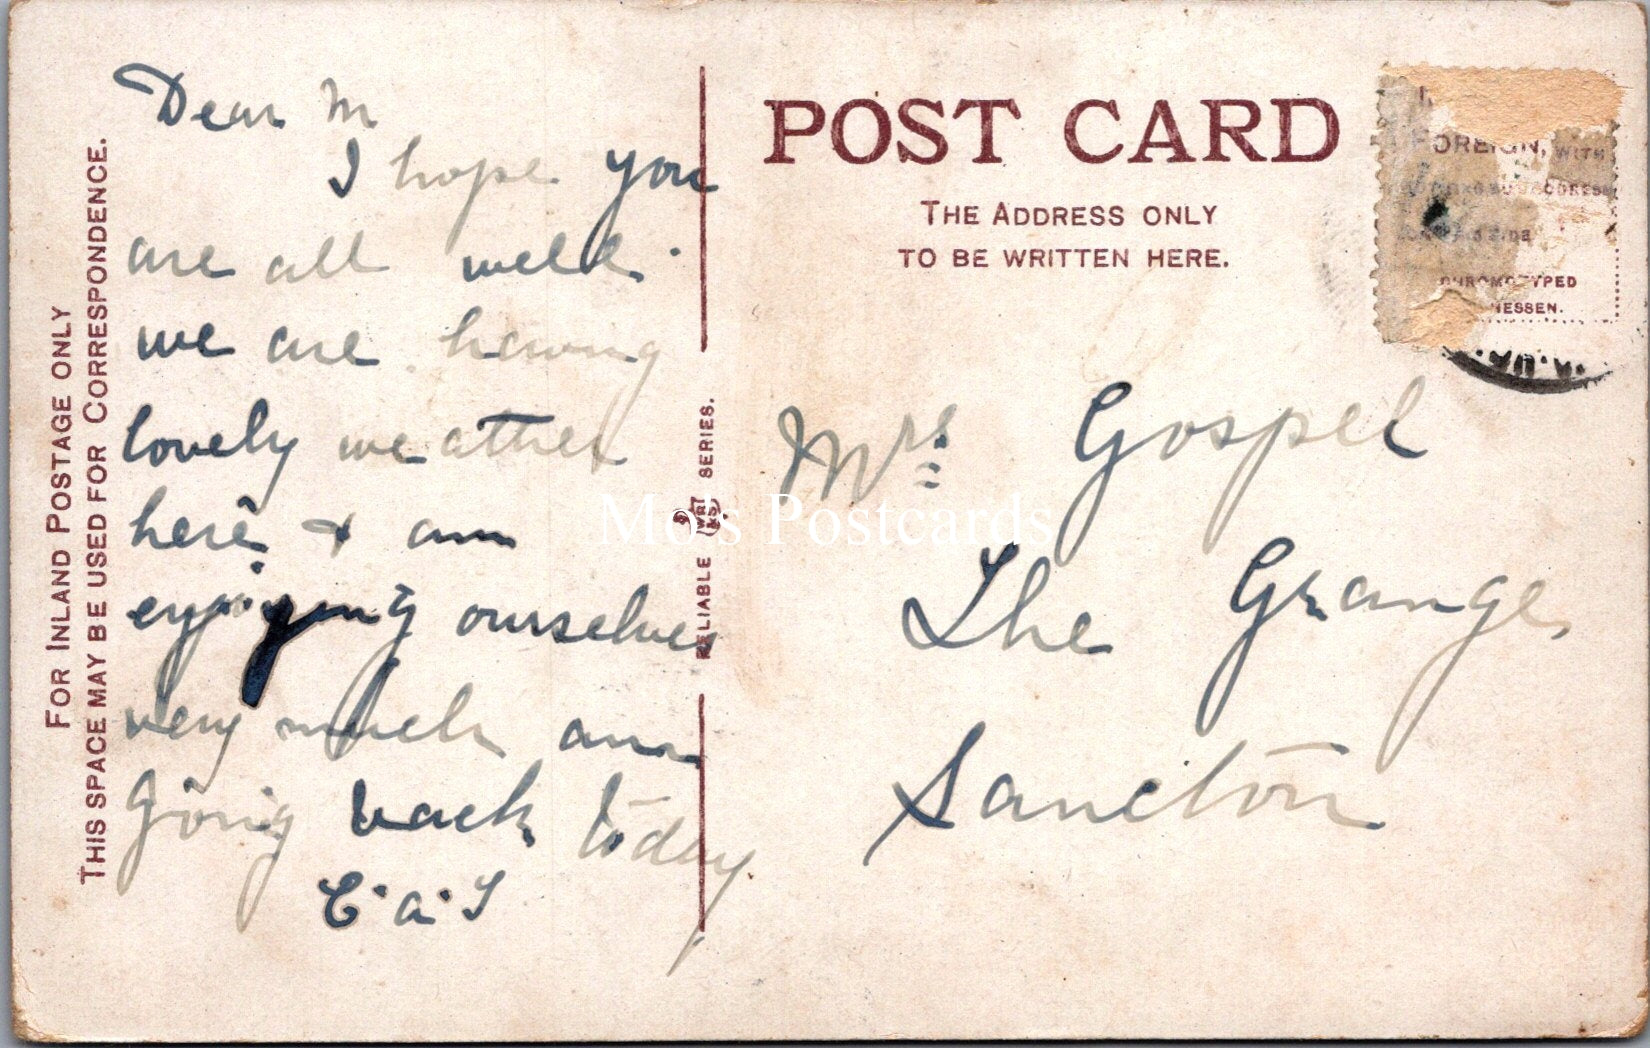 FOR INLAND POSTAGE ONLY
THIS SPACE MAY BE USED FOR CORRESPONDENCE.
Dear M
I hope you
are all well.
we are having
lovely weather
here & am
enjoying ourselves
very much am
going back today
C.a.T
POST CARD
THE ADDRESS ONLY
TO BE WRITTEN HERE.
FOREIGN, WITH
CHROMOTYPED
HESSEN.
RELIABLE WR&S SERIES.
Mrs Gospel
The Grange
Sancton
Mo's Postcards